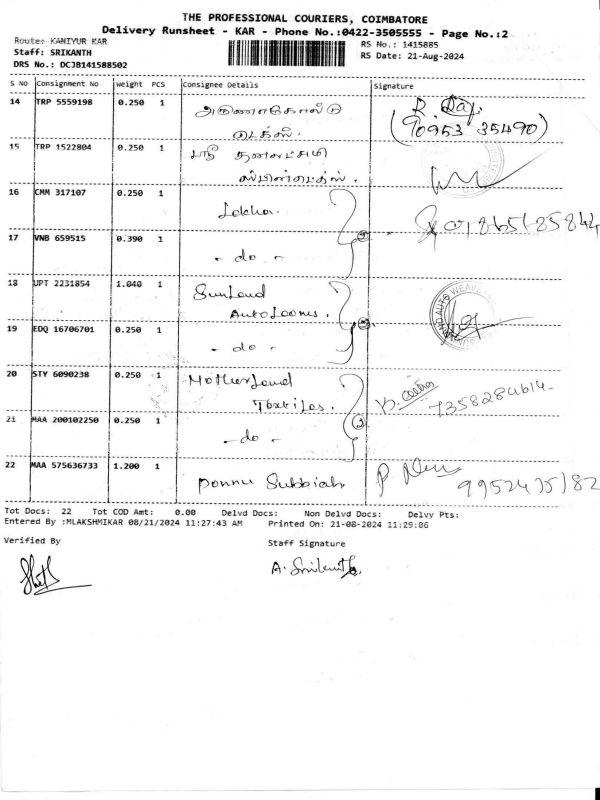 THE PROFESSIONAL COURIERS, COIMBATORE
Delivery Runsheet - KAR - Phone No.:0422-3505555 - Page No.:2
Route: KANIYUR KAR
RS No.: 1415885
Staff: SRIKANTH
RS Date: 21-Aug-2024
DRS No.: DCJB141588502
S No Consignment No Weight PCS Consignee Details Signature
14 TRP 5559198 0.250 1 அருணாகோல்டு
டெக்ஸ். R. Raj.
(90953 35490)
15 TRP 1522804 0.250 1 ஸ்ரீ தனலட்சுமி
ஸ்பின்டெக்ஸ்.
16 CMM 317107 0.250 1 Lekha.
17 VNB 659515 0.390 1 - do -
18 UPT 2231854 1.040 1 Sunland
Autolooms.
19 EDQ 16706701 0.250 1 - do -
20 STY 6090238 0.250 1 Motherland
Textiles. 7358284614
21 MAA 200102250 0.250 1 - do -
22 MAA 575636733 1.200 1 Ponnu Subbiah P.
Tot Docs: 22 Tot COD Amt: 0.00 Delvd Docs: Non Delvd Docs: Delvy Pts:
Entered By :MLAKSHMIKAR 08/21/2024 11:27:43 AM Printed On: 21-08-2024 11:29:06
Verified By Staff Signature
A. Srikanth